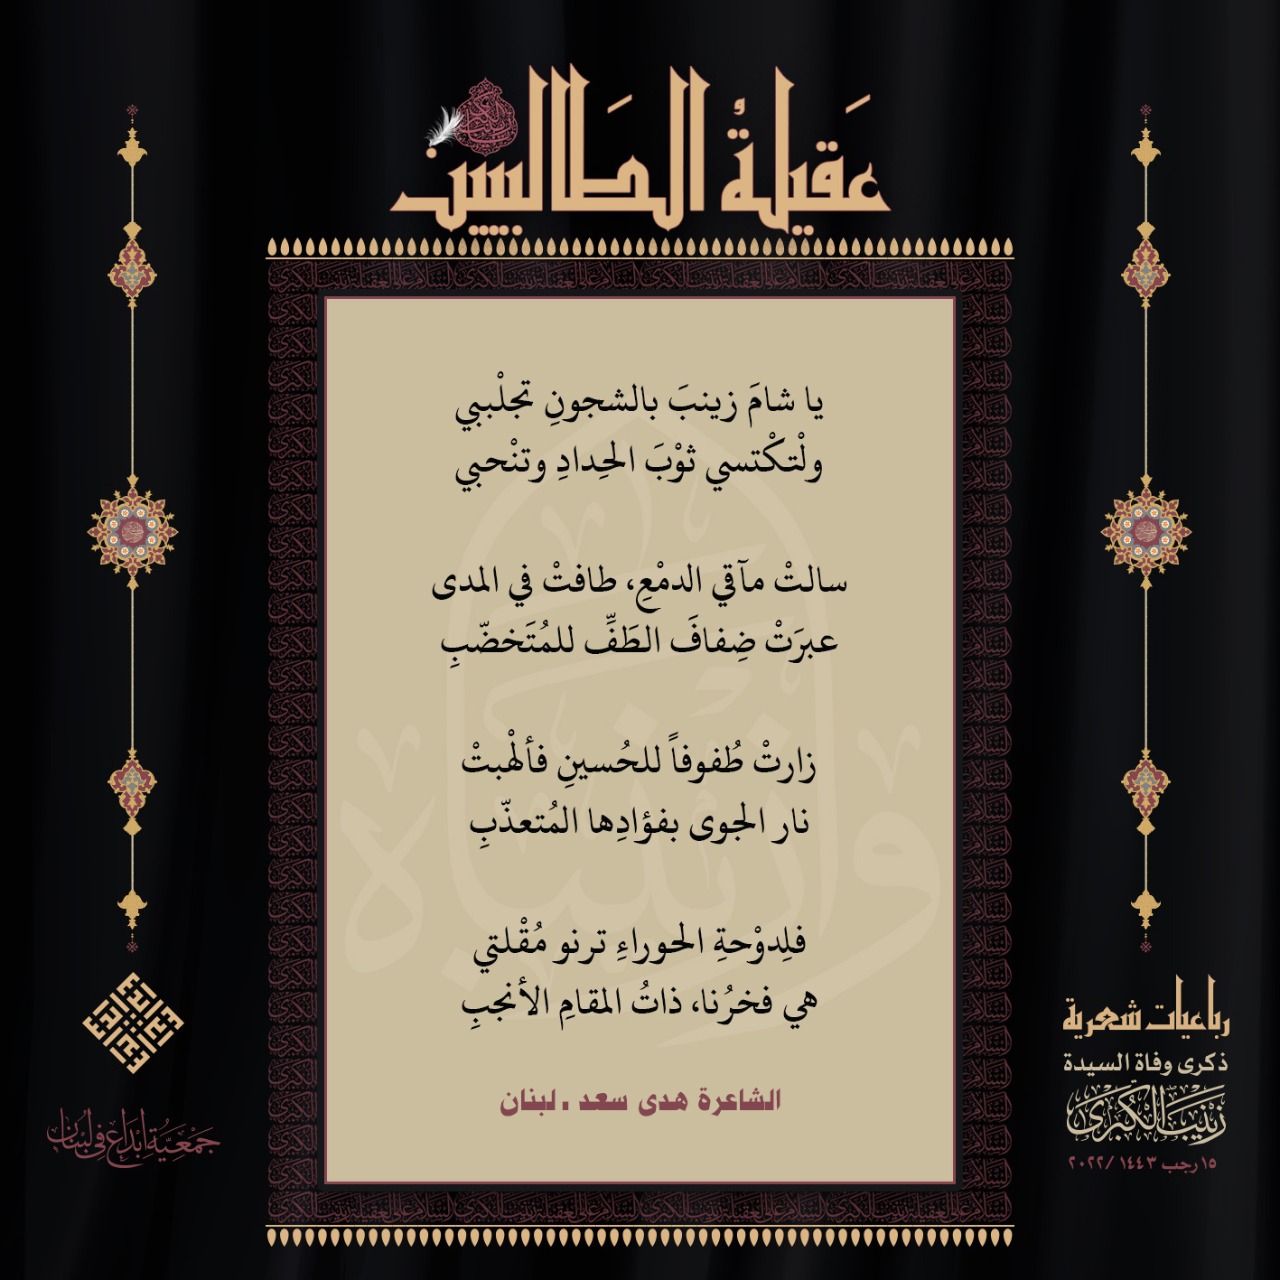 عَقيلةُ الطَالبيين
يا شامَ زينبَ بالشجونِ تجلْببي
ولْتكْتسي ثوْبَ الحِدادِ وتنْحبي
سالتْ مآقي الدمْعِ، طافتْ في المدى
عبرَتْ ضِفافَ الطَفِّ للمُتَخضّبِ
زارتْ طُفوفاً للحُسينِ فألهْبتْ
نار الجوى بفؤادِها المُتعذّبِ
فلِدوْحةِ الحوراءِ ترنو مُقْلتي
هي فخرُنا، ذاتُ المقامِ الأنجبِ
الشاعرة هدى سعد . لبنان
رباعيات شعرية
ذكرى وفاة السيدة
زَيْنَب الكُبْرَى
١٥ رجب ١٤٤٣ /٢٠٢٢
جَمْعِيَّةُ إبْدَاع فِي لُبْنَان